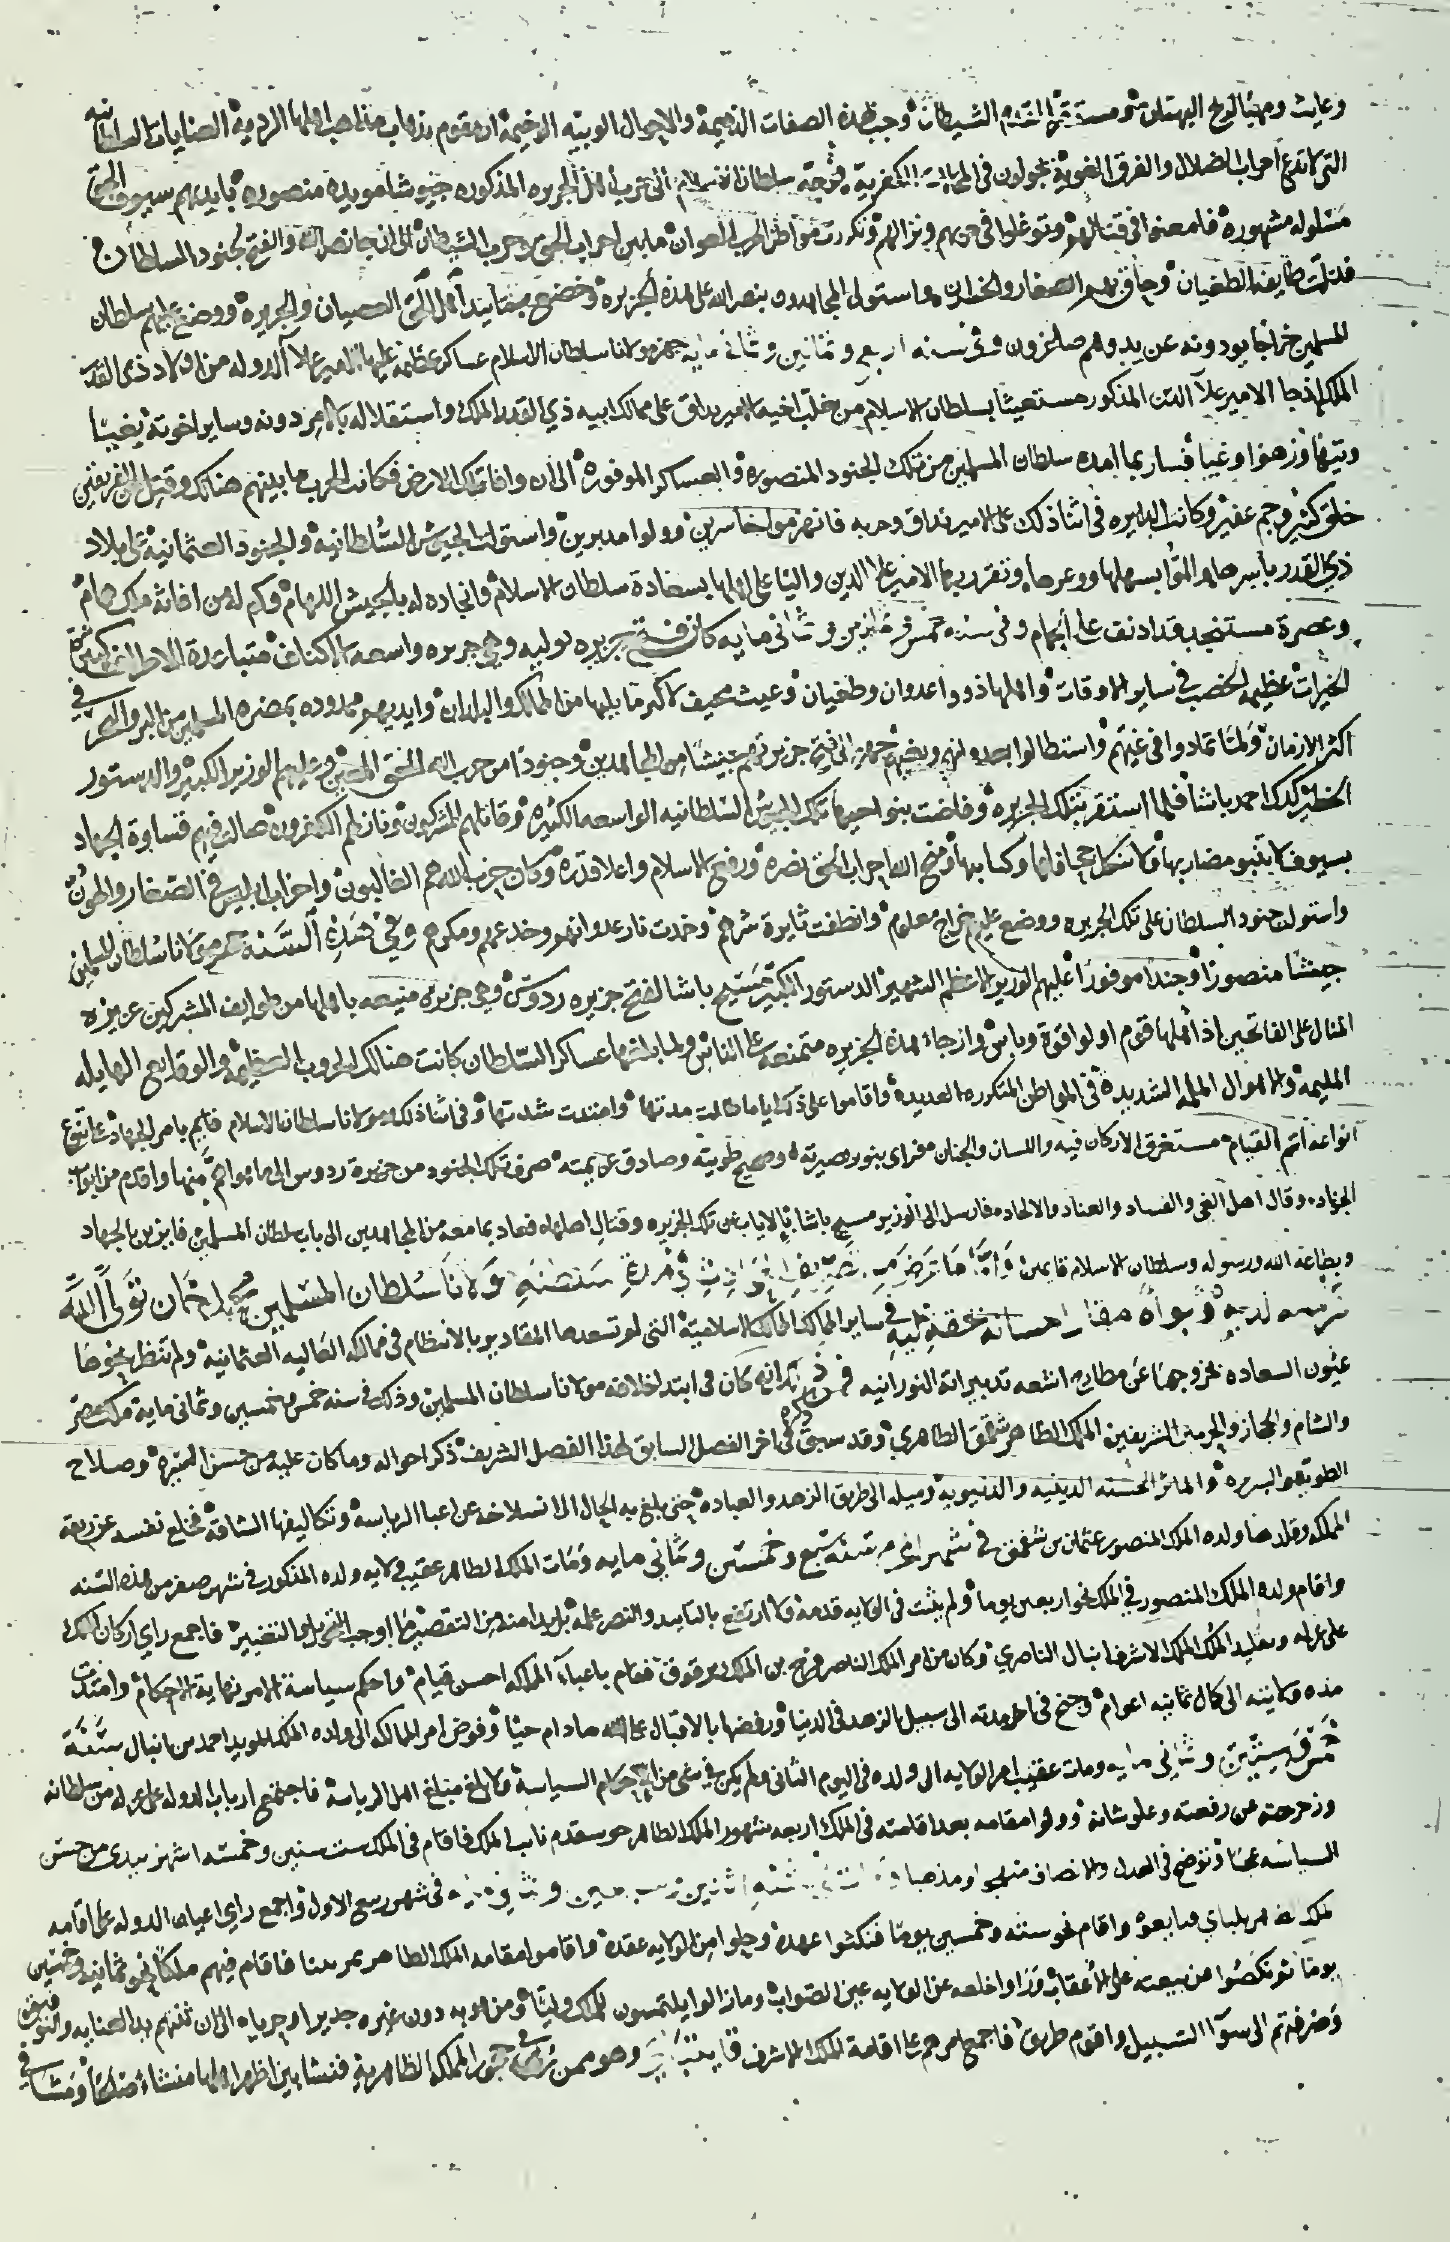 وعايث ومهيأ لروح البهتان ومستقر الشيطان وجب لهذه الصفات الذميمة والاحوال الوبيه الوخيمة ان يقوم بذهاب مذاهب اهلها الرديه العنايات السلطانيه
التي لا تدع احزاب الضلال والفرق الغوية يجولون في الكفرية فوجه سلطان الاسلام الى حرب اهل الجزيره المذكوره جيوشا مويده منصوره بايديهم سيوف الحق
مسلوله مشهوره فامعنوا في قتالهم وتوغلوا في حربهم ونزالهم وتكررت مواطن الحرب العوان ما بين احزاب الحق وحزب الشيطان الى ان جا نصر الله والفتح لجنود السلطان
فذلت طايفة الطغيان وحاق بهم الصغار والخذلان واستولى المجاهدون بنصر الله على هذه الجزيره وخضع اهل العصيان والجريره ووضع عليهم سلطان
المسلمين خراجا يودونه عن يد وهم صاغرون وفي سنه اربع وثمانين وثمانمايه جهز مولانا سلطان الاسلام عساكر عظيمه عليها الامير علا الدوله من اولاد ذي القدر
الملك لجا الامير علا الدين المذكور مستغيثا بسلطان الاسلام من تغلب اخيه الامير بداق على ممالك ابيه ذي القدر الملك واستقلاله بالامر دونه وساير اخوته بغيا
وتيها وزهوا وغيا فسار بما امده سلطان المسلمين من تلك الجنود المنصوره والعساكر الموفوره الى ان وافا تلك الارض فكانت الحرب ما بينهم هنالك وقتل من الفريقين
خلق كثير وجم غفير وكانت الدايره في اثنا ذلك على الامير بداق وحزبه فانهزموا خاسرين وولوا مدبرين واستولت الجيوش السلطانيه والجنود العثمانية على بلاد
ذي القدر باسرها سهلها ووعرها وتقرر بها الامير علا الدين واليا على اهلها بسعادة سلطان الاسلام وانجاده له بالجيش اللهام وكم له من اغاثة ملك همام
وعصرة مستنجد قد اذنف على الحمام وفي سنه خمس وثمانين وثماني مايه كان فتح جزيره بوليه وهي جزيره واسعة الاكناف متباعدة الاطراف كثيرة
الخيرات عظيمة الخصب في ساير الاوقات واهلها ذووا عدوان وطغيان وعيث مخيف لاكثر ما يليها من الممالك والبلدان وايديهم ممدوده بمضره المسلمين من البر والبحر في
اكثر الازمان ولما تمادوا في غيهم واستطالوا بعدوانهم وبغيهم جهز الى فتح جزيرتهم جيشا من المجاهدين وجنودا من حزب الله المحق المبين وعليهم الوزير الكبير والدستور
الخطير كدك احمد باشا فلما استقر بتلك الجزيره وفاضت بنواحيها تلك الجيوش السلطانيه الواسعه الكثيره وقاتلهم المشركون ونازلهم الكفرون صالت فيهم قساورة الجهاد
بسيوف لا ينبو مضاربها ولا تنكل جحافلها وكتايبها ومنح الله احزاب الحق نصره ورفع الاسلام واعلا قدره وكان حزب الله هم الغالبون واحزاب ابليس في الصغار والهون
واستولت جنود السلطان على تلك الجزيره ووضع عليهم خراج معلوم وانطفت ثايرة شرهم وخمدت نار عدوانهم وخدعهم ومكرهم وفي هذه السنه جهز مولانا سلطان المسلمين
جيشا منصورا وجندا موفورا عليهم الوزير الاعظم الشهير الدستور الكبير مسيح باشا لفتح جزيره ردوس وهي جزيره منيعه باهلها من طوايف المشركين عزيزه
المنال على الفاتحين اذ اهلها قوم اولوا قوة وباس وارجاء هذه الجزيره متمنعه على الناس ولما بلغها عساكر السلطان كانت هنالك الحروب العظيمة والوقايع الهايله
المليمة والاهوال الملمه الشديدة في المواطن المتكرره العديده واقاموا على ذلك اياما طالت مدتها وامتدت شدتها وفي اثنا ذلك مولانا سلطان الاسلام قايم بامر الجهاد على تنوع
انواعه اتم القيام مستغرق الاركان فيه واللسان والجنان فراى بنور بصيرته وصحيح طويته وصادق عزيمته صرف تلك الجنود من جزيرة ردوس الى ما هو اهم منها واقدم من ابواب
الجهاد وقتال اهل الغي والفساد والعناد والالحاد فارسل الى الوزير مسيح باشا بالاياب عن تلك الجزيره وقتال اهلها فعاد بما معه من المجاهدين الى باب سلطان المسلمين فايزين بالجهاد
وبطاعة الله ورسوله وسلطان الاسلام قايمين واما ما في سلطنة مولانا سلطان المسلمين محمد خان تولى الله
احسانه في ساير الممالك الاسلاميه التي لم تسعدها المقادير بالانتظام في ممالكه العاليه العثمانيه ولم تنظر نحوها
عيون السعاده لخروجها عن مطارح اشعه تدبيراته النورانيه كان في ابتدا خلافه مولانا سلطان المسلمين وذلك في سنه خمس وخمسين وثمانى مايه ملك مصر
والشام والحجاز والحرمين الشريفين الملك الظاهر جقمق الظاهري وقد سبق في اخر الفصل السابق لهذا الفصل الشريف ذكر احواله وما كان عليه من حسن السيره وصلاح
الطويه والسريره والماثر الحسنه الدينيه والدنيويه وميله الى طريق الزهد والعباده حتى بلغ به الحال الى انسلاخه عن اعبا الرياسة وتكاليفها الشاقة فخلع نفسه عن ربقه
المملكه وقلدها ولده الملك المنصور عثمان بن شقمق في شهر المحرم سنة سبع وخمسين وثماني مايه ومات الملك الظاهر عقيب ولايه ولده المذكور في شهر صفر من هذه السنه
واقام ولده الملك المنصور في الملك نحو اربعين يوما ولم يثبت في الولايه قدمه ولا ارتفع بالتاييد والنصر علمه لما بدا منه من التقصير ما اوجب التحويل والتغيير فاجمع راي اركان الملك
على عزله وتقليد الملك الملك الاشرف اينال الناصري وكان من امرا الملك الناصر فرج بن الملك برقوق فقام باعباء المملكه احسن قيام واحكم سياسة الامر نهاية الاحكام وامتدت
مده ولايته الى كمال ثمانيه اعوام وجنح في اخر مدته الى سبيل الزهد في الدنيا ورفضها بالاقبال على الله ما دام حيا وفوض امر الممالك الى ولده الملك المويد احمد بن اينال سنة
خمس وستين وثماني مايه ومات عقيب امر الولايه الى ولده في اليوم الثاني ولم يكن في شى من احكام السياسة ولا بلغ مبلغ اهل الرياسة فاجتمع ارباب الدوله على عزله من سلطانه
وزحزحته عن رفعته وعلو شانه وولوا مقامه بعد اقامته في الملك اربعه شهور الملك الظاهر خوشقدم نايب الملك فاقام في الملك ست سنين وخمسه اشهر يبدي من حسن
السياسه عجبا ويوضح في العدل والانصاف منهجا ومذهبا سنة اثنين وسبعين وثماني مايه في شهر ربيع الاول واجمع راي اعيان الدوله على اقامه
الملك الظاهر بلباي فبايعوه واقام نحو سته وخمسين يوما فنكثوا عهده وحلوا من الولايه عقده واقاموا مقامه الملك الظاهر تمربغا فاقام فيهم ملكا نحو ثمانيه وخمسين
يوما ثم نكصوا عن بيعته على الاعقاب وراوا خلعه عن الولايه عين الصواب وما زالوا يلتمسون للملك وليا ومن هو به دون غيره جديرا وحريا الى ان ثنتهم يد العنايه والتوفيق
وصرفتهم الى سوآ السبيل واقوم طريق فاجمع امرهم على اقامة الملك الاشرف قايتباي وهو ممن ربي في حجور المملكه الظاهرية فنشا بين اظهر اهلها منشاء صالحا ومشا في